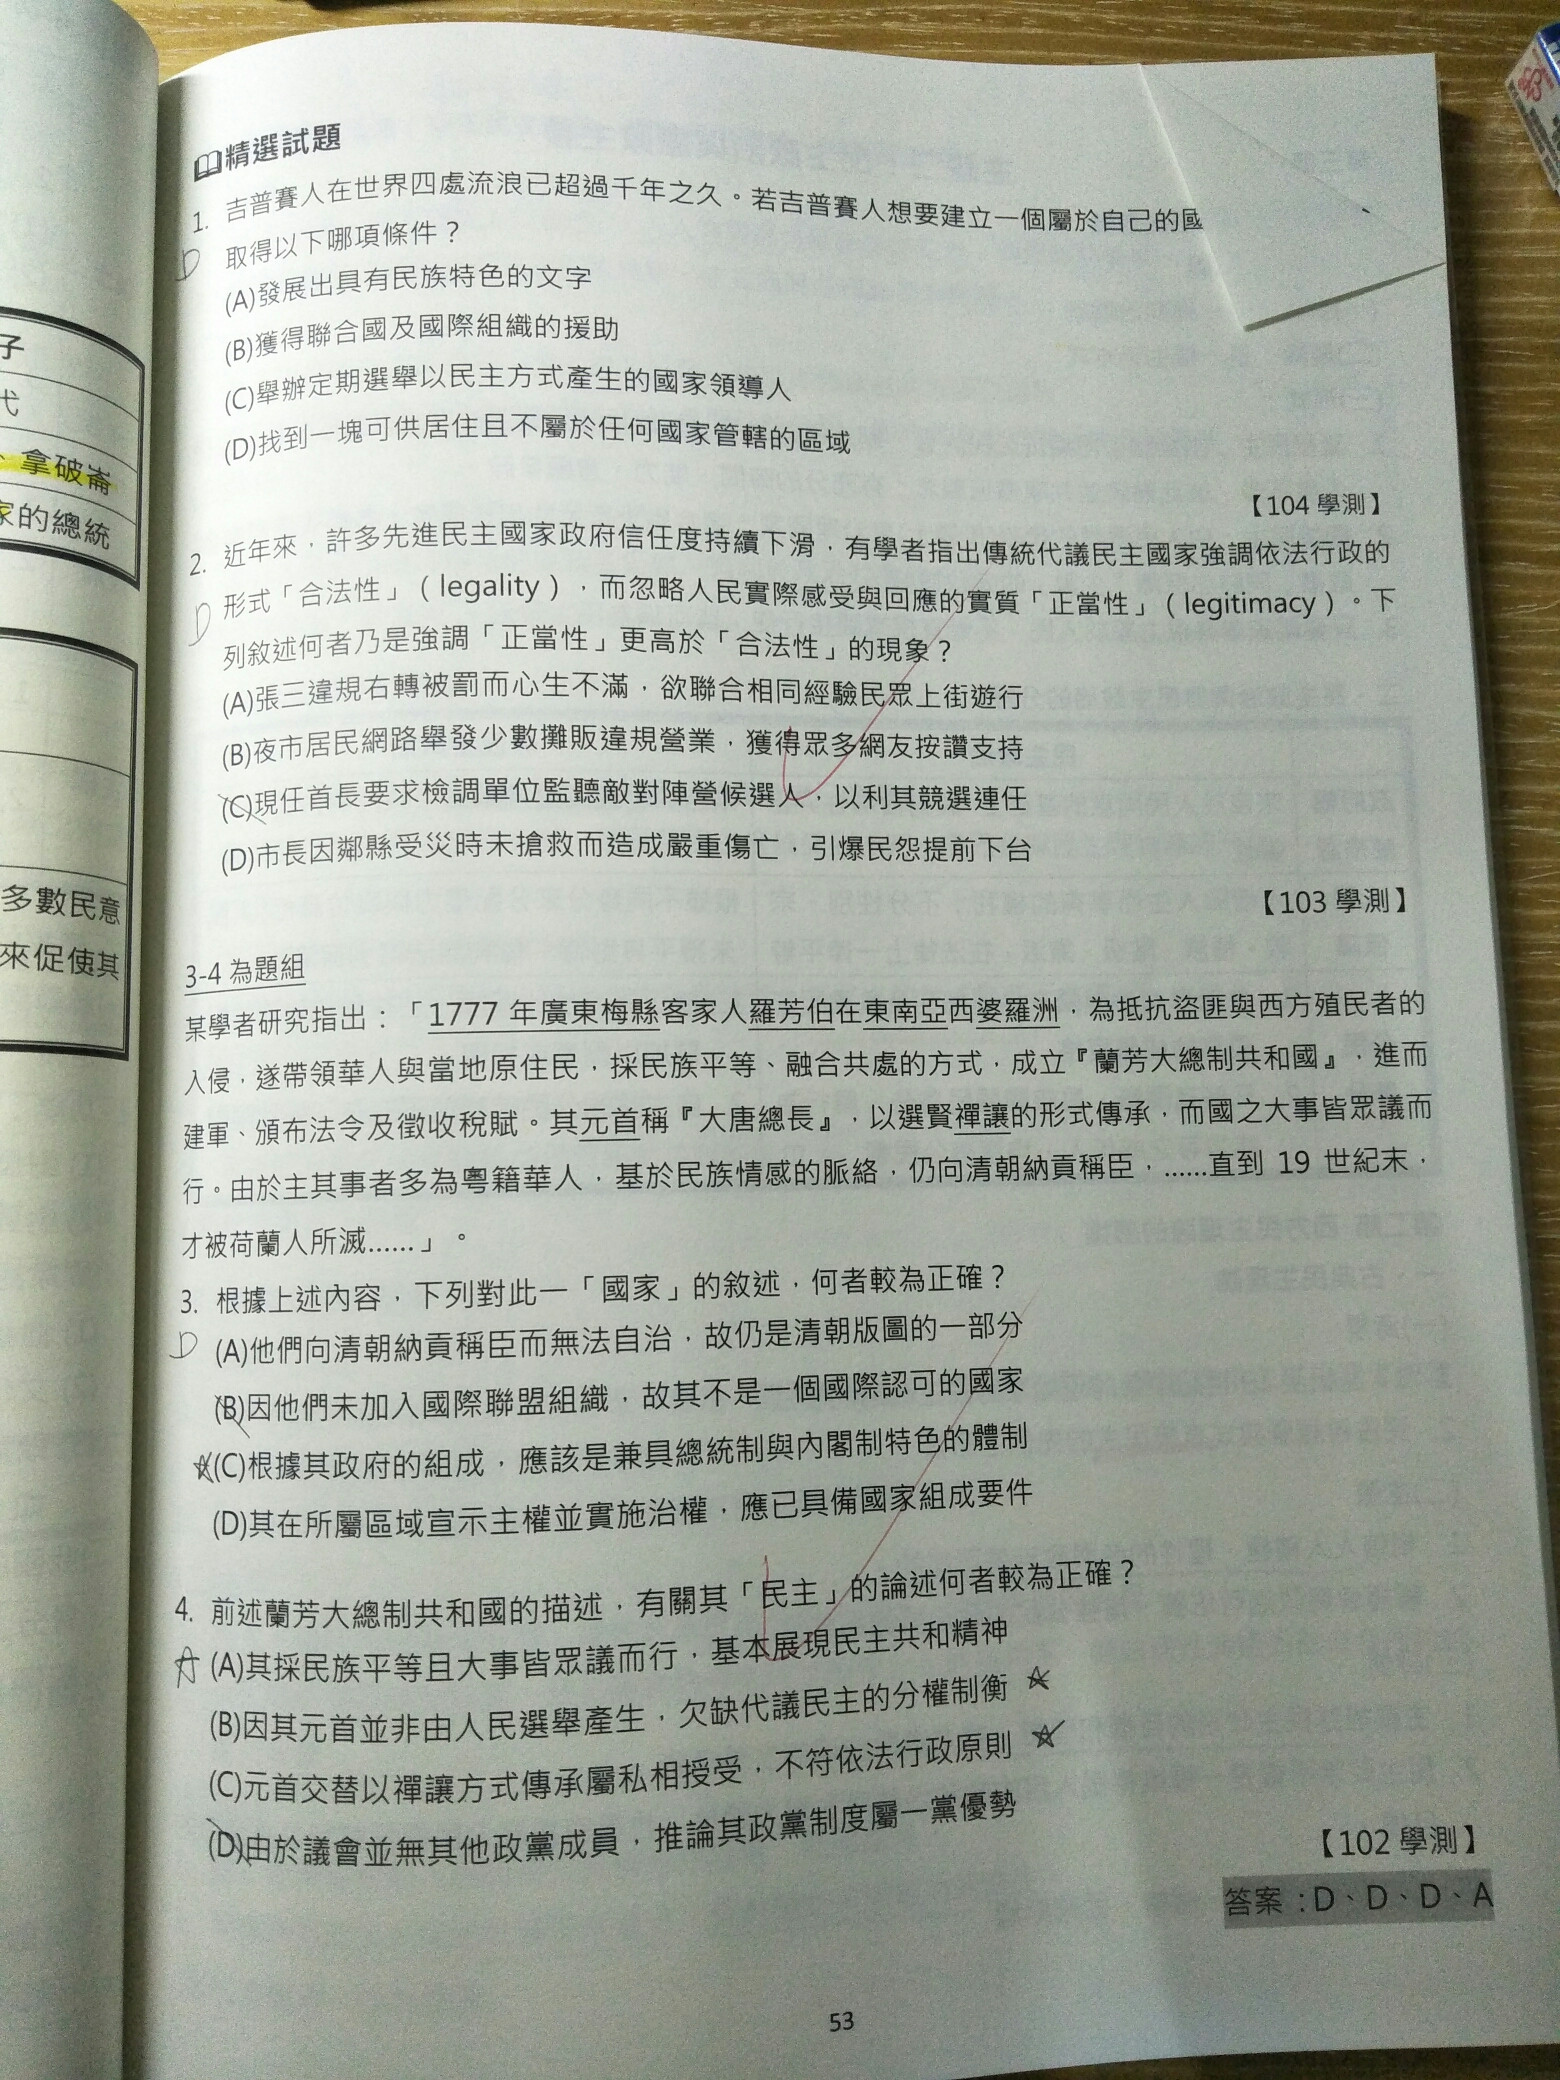 子
代
、拿破崙
家的總統
多數民意
來促使其
精選試題
1. 吉普賽人在世界四處流浪已超過千年之久。若吉普賽人想要建立一個屬於自己的國
D 取得以下哪項條件？
(A)發展出具有民族特色的文字
(B)獲得聯合國及國際組織的援助
(C)舉辦定期選舉以民主方式產生的國家領導人
(D)找到一塊可供居住且不屬於任何國家管轄的區域
【104 學測】
2. 近年來，許多先進民主國家政府信任度持續下滑，有學者指出傳統代議民主國家強調依法行政的
D 形式「合法性」（legality），而忽略人民實際感受與回應的實質「正當性」（legitimacy）。下
列敘述何者乃是強調「正當性」更高於「合法性」的現象？
(A)張三違規右轉被罰而心生不滿，欲聯合相同經驗民眾上街遊行
(B)夜市居民網路舉發少數攤販違規營業，獲得眾多網友按讚支持
(C)現任首長要求檢調單位監聽敵對陣營候選人，以利其競選連任
(D)市長因鄰縣受災時未搶救而造成嚴重傷亡，引爆民怨提前下台
【103 學測】
3-4 為題組
某學者研究指出：「1777 年廣東梅縣客家人羅芳伯在東南亞西婆羅洲，為抵抗盜匪與西方殖民者的
入侵，遂帶領華人與當地原住民，採民族平等、融合共處的方式，成立『蘭芳大總制共和國』，進而
建軍、頒布法令及徵收稅賦。其元首稱『大唐總長』，以選賢禪讓的形式傳承，而國之大事皆眾議而
行。由於主其事者多為粵籍華人，基於民族情感的脈絡，仍向清朝納貢稱臣，......直到 19 世紀末，
才被荷蘭人所滅......」。
3. 根據上述內容，下列對此一「國家」的敘述，何者較為正確？
D (A)他們向清朝納貢稱臣而無法自治，故仍是清朝版圖的一部分
(B)因他們未加入國際聯盟組織，故其不是一個國際認可的國家
(C)根據其政府的組成，應該是兼具總統制與內閣制特色的體制
(D)其在所屬區域宣示主權並實施治權，應已具備國家組成要件
4. 前述蘭芳大總制共和國的描述，有關其「民主」的論述何者較為正確？
A (A)其採民族平等且大事皆眾議而行，基本展現民主共和精神
(B)因其元首並非由人民選舉產生，欠缺代議民主的分權制衡
(C)元首交替以禪讓方式傳承屬私相授受，不符依法行政原則
(D)由於議會並無其他政黨成員，推論其政黨制度屬一黨優勢
【102 學測】
答案：D、D、D、A
53